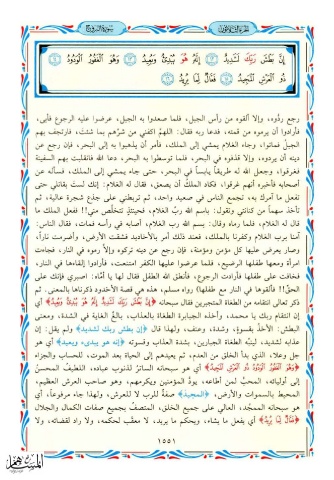 الجزء الثلاثون
سورة البروج
إِنَّ بَطْشَ رَبِّكَ لَشَدِيدٌ ۝ إِنَّهُ هُوَ يُبْدِئُ وَيُعِيدُ ۝ وَهُوَ الْغَفُورُ الْوَدُودُ ۝
ذُو الْعَرْشِ الْمَجِيدُ ۝ فَعَّالٌ لِّمَا يُرِيدُ ۝
رجع ردُّوه، وإلا ألقوه من رأس الجبل، فلما صعدوا به الجبل، عرضوا عليه الرجوع فأبى،
فأرادوا أن يرموه من قمته، فدعا ربه فقال: اللهمَّ اكفني من شرِّهم بما شئت، فارتجف بهم
الجبل فماتوا، وجاء الغلام يمشي إلى الملك، فأمر أن يذهبوا به إلى البحر، فإن رجع عن
دينه أن يردوه، وإلا قذفوه في البحر، فلما توسطوا به البحر، دعا الله فانقلبت بهم السفينة
فغرقوا، وجعل الله له طريقاً يابساً في البحر، حتى جاء يمشي إلى الملك، فسأله عن
أصحابه فأخبره أنهم غرقوا، فكاد الملك أن يصعق، فقال له الغلام: إنك لستَ بقاتلي حتى
تفعل ما آمرك به، تجمع الناس في صعيد واحد، ثم تربطني على جذع شجرة عالية، ثم
تأخذ سهماً من كنانتي وتقول: باسم الله ربِّ الغلام، فحينئذٍ تتخلَّص مني!! ففعل الملك ما
قال له الغلام، فلما رماه وقال: بسم الله رب الغلام، أصابه في رأسه فمات، فقال الناس:
آمنا برب الغلام وكفرنا بالملك، فعند ذلك أمر بالأخاديد فشقت الأرض، وأضرمت ناراً،
وصار يعرض عليها كل مؤمن ومؤمنة، فإن رجع عن دينه تركوه وإلا رموه في النار، فجاءت
امرأة ومعها طفلها الرضيع، فلما عرضوا عليها الكفر امتنعت، فأرادوا إلقاءها في النار،
فخافت على طفلها فأرادت الرجوع، فأنطق الله الطفل فقال لها يا أمَّاه: اصبري فإنك على
الحق!! فألقوها في النار مع طفلها) رواه مسلم، هذه هي قصة الأخدود ذكرناها بالمعنى.. ثم
ذكر تعالى انتقامه من الطغاة المتجبرين فقال سبحانه ﴿إِنَّ بَطْشَ رَبِّكَ لَشَدِيدٌ إِنَّهُ هُوَ يُبْدِئُ وَيُعِيدُ﴾ أي
إن انتقام ربك يا محمد، وأخذه الجبابرة الطغاة بالعذاب، بالغُ الغاية في الشدة، ومعنى
البطش: الأخذُ بقسوة، وشدة، وعنف، ولهذا قال ﴿إن بطش ربك لشديد﴾ ولم يقل: إن
عذابه لشديد، لينبِّه الطغاة الجبارين، بشدة العذاب وقسوته ﴿إنه هو يبدئ، ويعيد﴾ أي هو
جل وعلا، الذي بدأ الخلق من العدم، ثم يعيدهم إلى الحياة بعد الموت، للحساب والجزاء
﴿وَهُوَ الْغَفُورُ الْوَدُودُ ذُو الْعَرْشِ الْمَجِيدُ﴾ أي هو سبحانه الساتر لذنوب عباده، اللطيف المحسنُ
إلى أوليائه، المحبُّ لمن أطاعه، يودُّ المؤمنين ويكرمهم، وهو صاحب العرش العظيم،
المحيط بالسموات والأرض، ﴿المجيدُ﴾ صفةٌ للرب لا للعرش، ولهذا جاء مرفوعاً، أي
هو سبحانه الممجَّد، العالي على جميع الخلق، المتصفُ بجميع صفات الكمال والجلال
﴿فَعَّالٌ لِّمَا يُرِيدُ﴾ أي يفعل ما يشاء، ويحكم بما يريد، لا معقِّب لحكمه، ولا رادَّ لقضائه، ولا
١٥٥١